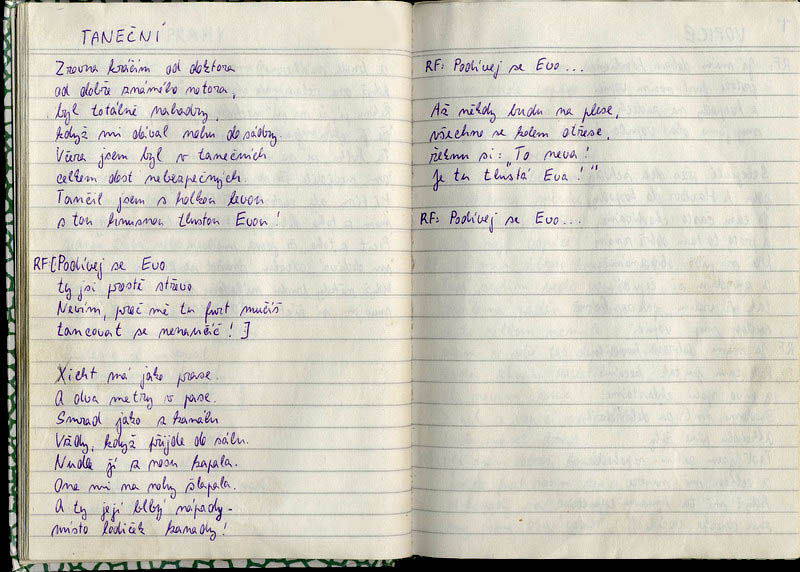 TANEČNÍ
Zrovna kráčím od doktora
od dobře známého notora,
byl totálně nahadry,
když mi obíval nohu do sádry.
Včera jsem byl v tanečních
celkem dost nebezpečných
Tančil jsem s holkou levou
s tou hnusnou tlustou Evou!
RF[Podívej se Evo
ty jsi prostě střevo
Nevím, proč mě tu furt mučíš
tancovat se nenaučíš! ]
Xicht má jako prase.
A dva metry v pase.
Smrad jako z kanálu
Vždy, když přijde do sálu.
Nudle jí z nosu kapala.
Ona mi na nohy šlapala.
A ty její blbý nápady-
místo lodiček kanady!
RF: Podívej se Evo...
Až někdy budu na plese,
všechno se kolem otřese,
řeknu si: „To neva!
Je tu tlustá Eva!"
RF: Podívej se Evo...